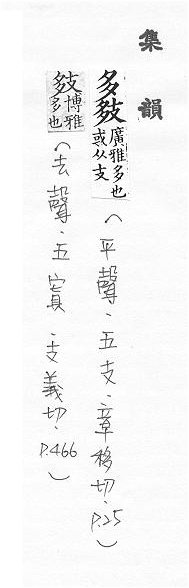 集韻
多
廣雅多也
或从支
（平聲．五支．章移切．P.25）
博雅
多也
（去聲．五寘．支義切．P.466）